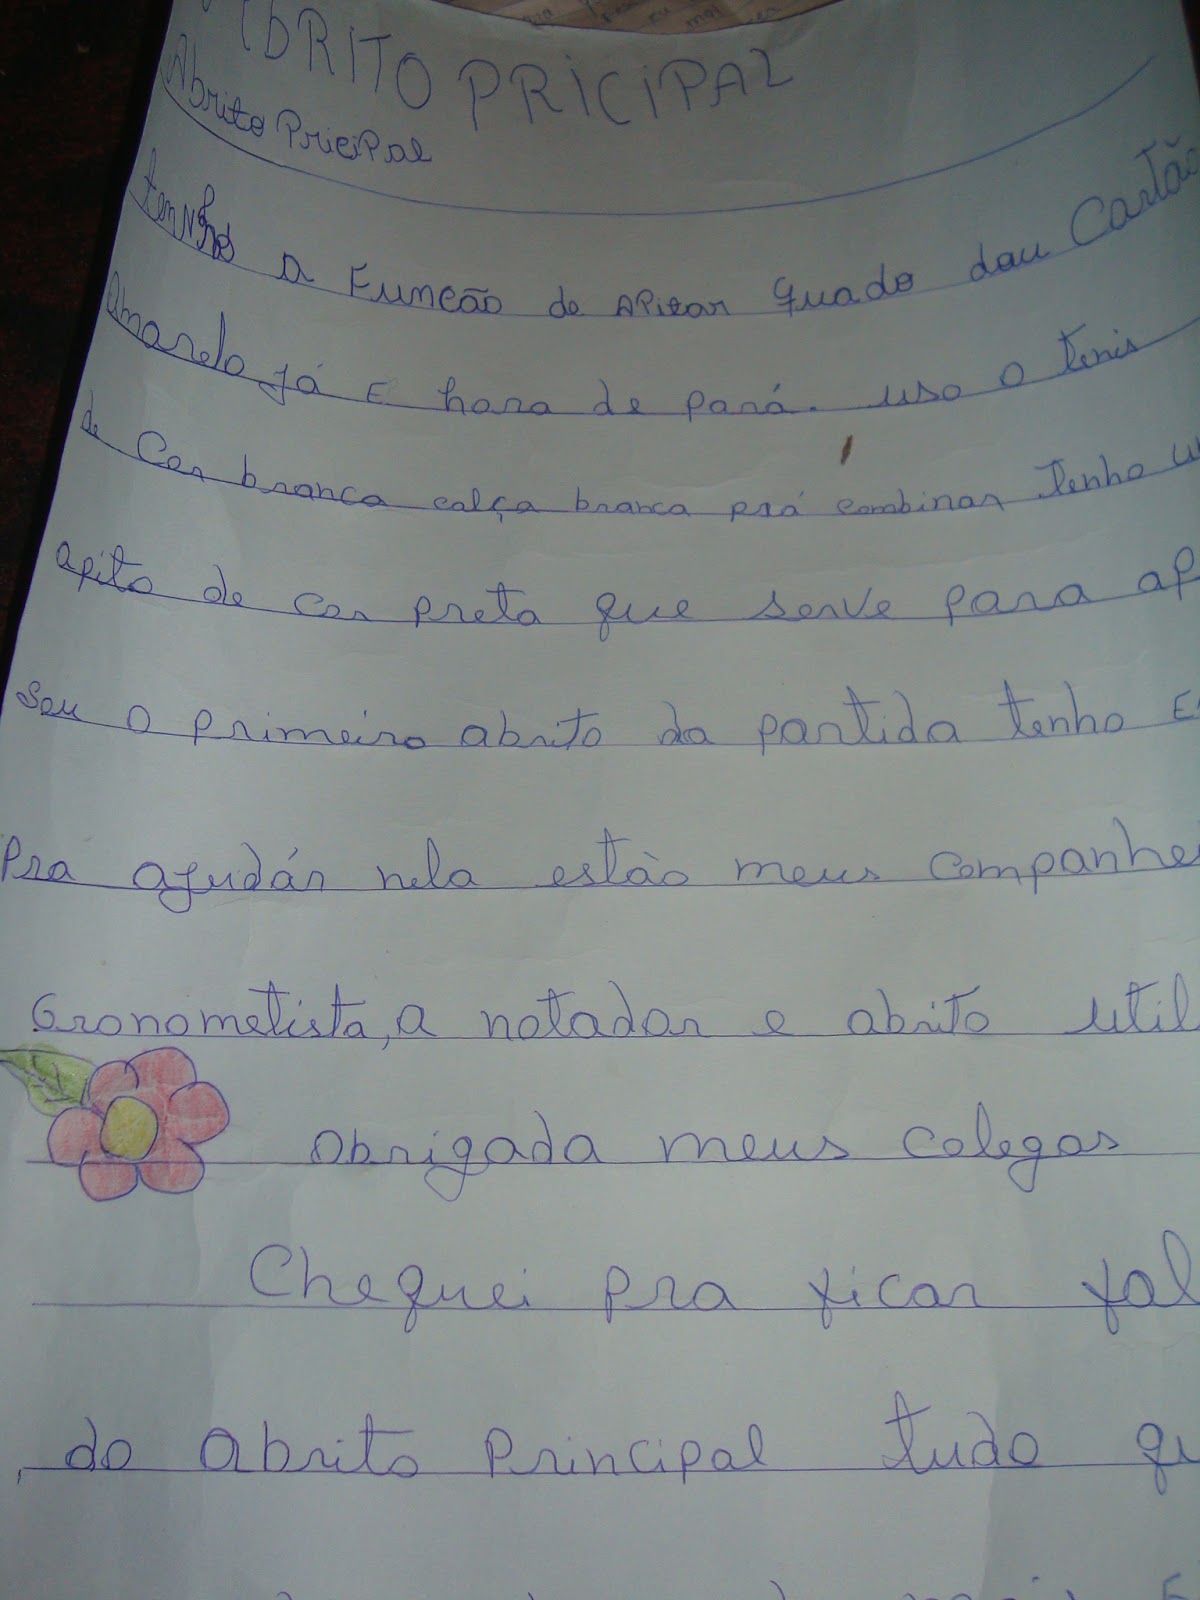 ABRITO PRICIPAL
Abrito PriciPal
tenho a Função de APitar quado dou Cartão
amarelo já E hora de pará. uso o tenis
de Cor branca calça branca prá combinar tenho u
apito de cor preta que serve para ap
Sou o primeiro abrito da partida tenho E
Pra ajudár nela estão meus companhei
Cronometista, a notador e abrito util
Obrigada meus colegas
Cheguei pra ficar fal
do abrito Principal tudo qu